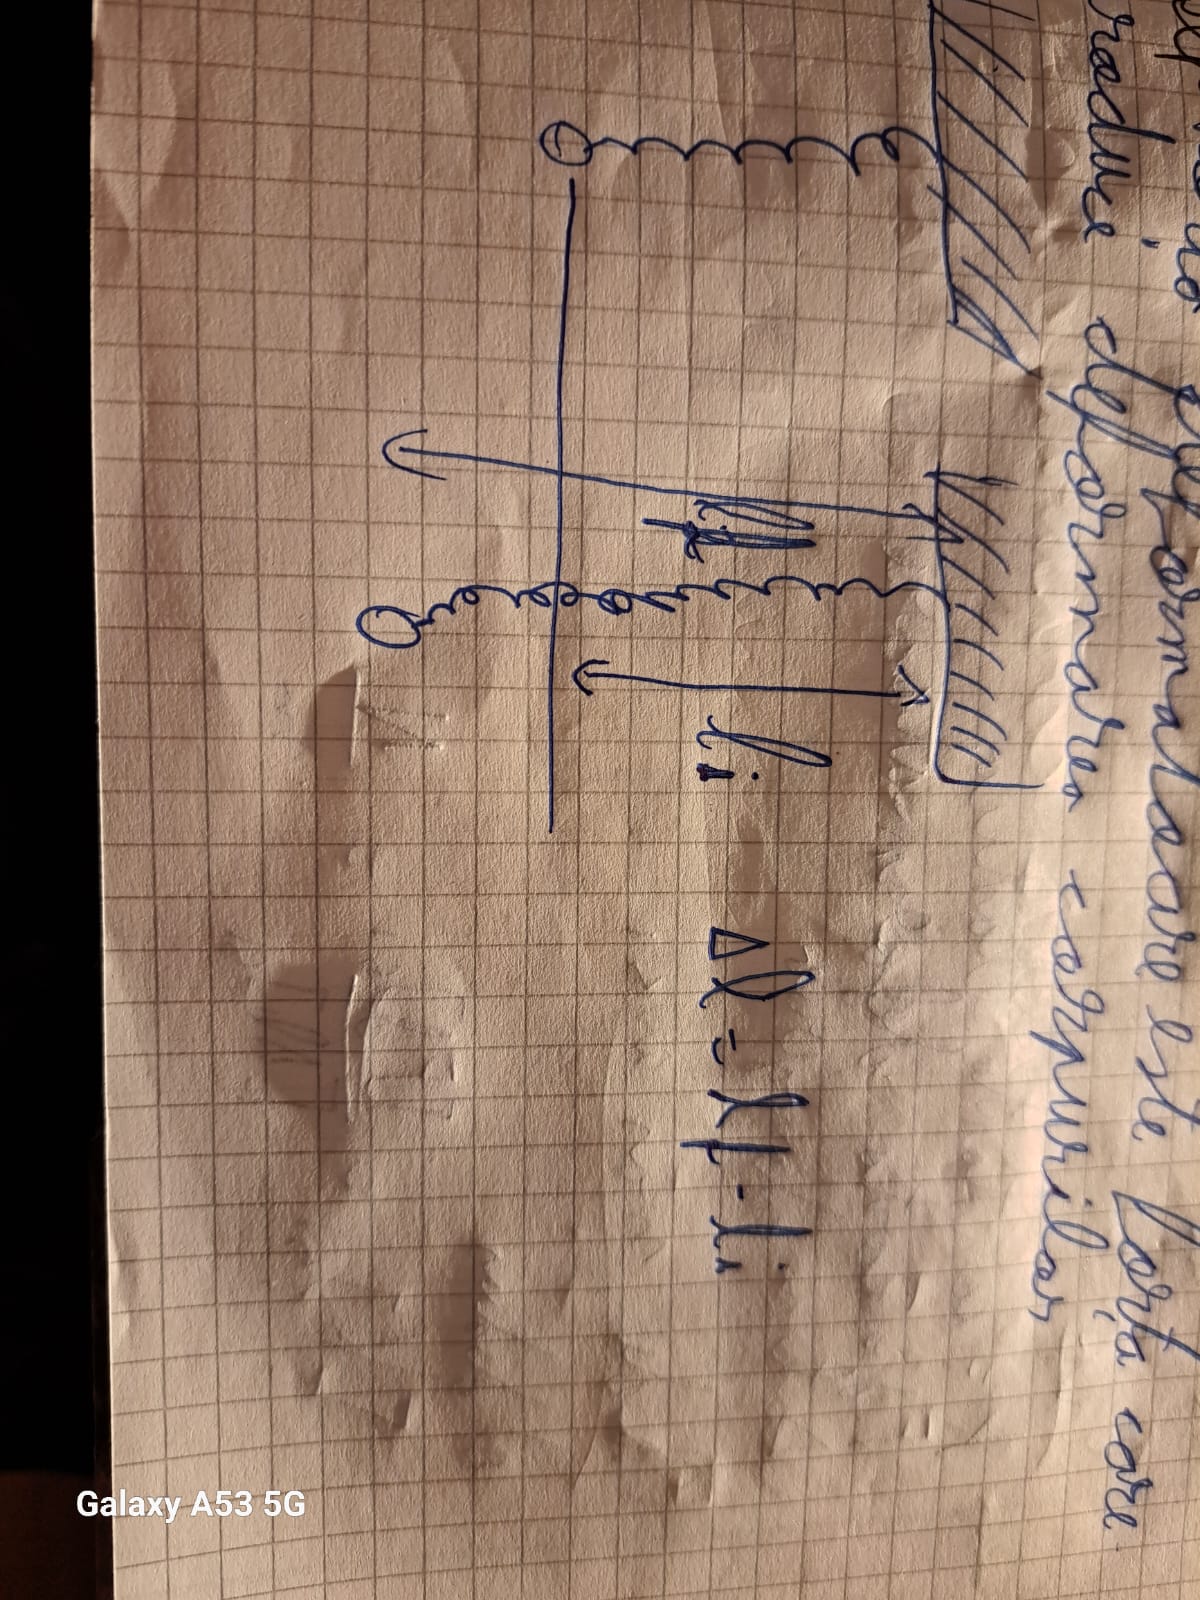 deformatoare este forța care
deformarea corpurilor
lf
li
Δl = lf - li
Galaxy A53 5G